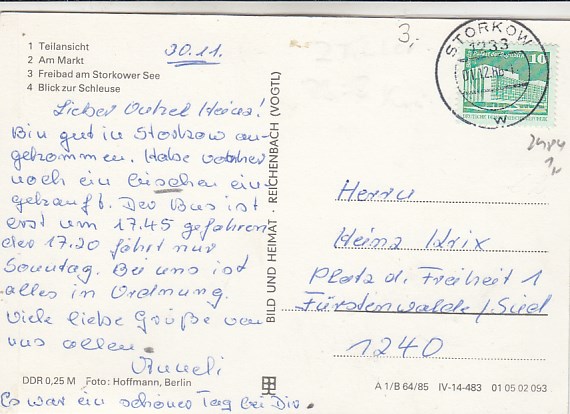 1 Teilansicht
2 Am Markt
3 Freibad am Storkower See
4 Blick zur Schleuse
30.11.
Lieber Onkel Heinz!
Bin gut in Storkow an-
gekommen. Habe vorher
noch ein bischen ein
gekauft. Der Bus ist
erst um 17.45 gefahren
der 17.20 fährt nur
Sonntag. Bei uns ist
alles in Ordnung.
Viele liebe Grüße von
uns allen
Anneli
Es war ein schöner Tag bei Dir.
DDR 0,25 M Foto: Hoffmann, Berlin
BILD UND HEIMAT · REICHENBACH (VOGTL)
3,-
STORKOW
1233
W
10
DEUTSCHE DEMOKRATISCHE REPUBLIK
Herrn
Heinz Krix
Platz d. Freiheit 1
Fürstenwalde/Süd
1240
A 1/B 64/85 IV-14-483 01 05 02 093